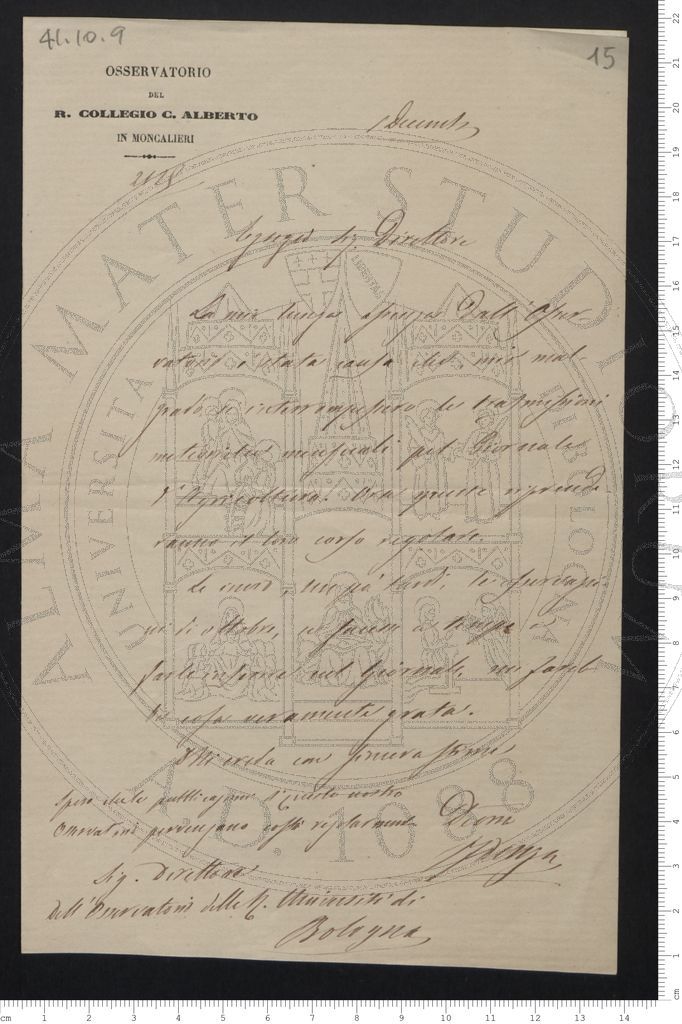 41.10.9
15
OSSERVATORIO
DEL
R. COLLEGIO C. ALBERTO
IN MONCALIERI
Egregio Sig. Direttore
La mia lunga assenza dall' Osser-
vatorio è stata causa che mio mal-
grado si interrompessero le trasmissioni
meteoriche mensuali pel Giornale
d'Agricoltura. Ora queste riprende-
ranno il loro corso regolare.
Le invio, un po' tardi, le osservazio-
ni di ottobre, se fossero a tempo ad
farle inserire nel Giornale, mi farebbe
cosa veramente grata.
Mi creda con sincera stima
Spero che le pubblicazioni di questo nostro
Osservatorio pervengano costì regolarmente
Devmo
F Denza
Sig. Direttore
Dell'Osservatorio della R. Università di
Bologna
ALMA MATER STUDIORUM
UNIVERSITÀ DI BOLOGNA
LIBERTAS
A.D. 1088
cm 1 2 3 4 5 6 7 8 9 10 11 12 13 14
cm 1 2 3 4 5 6 7 8 9 10 11 12 13 14 15 16 17 18 19 20 21 22